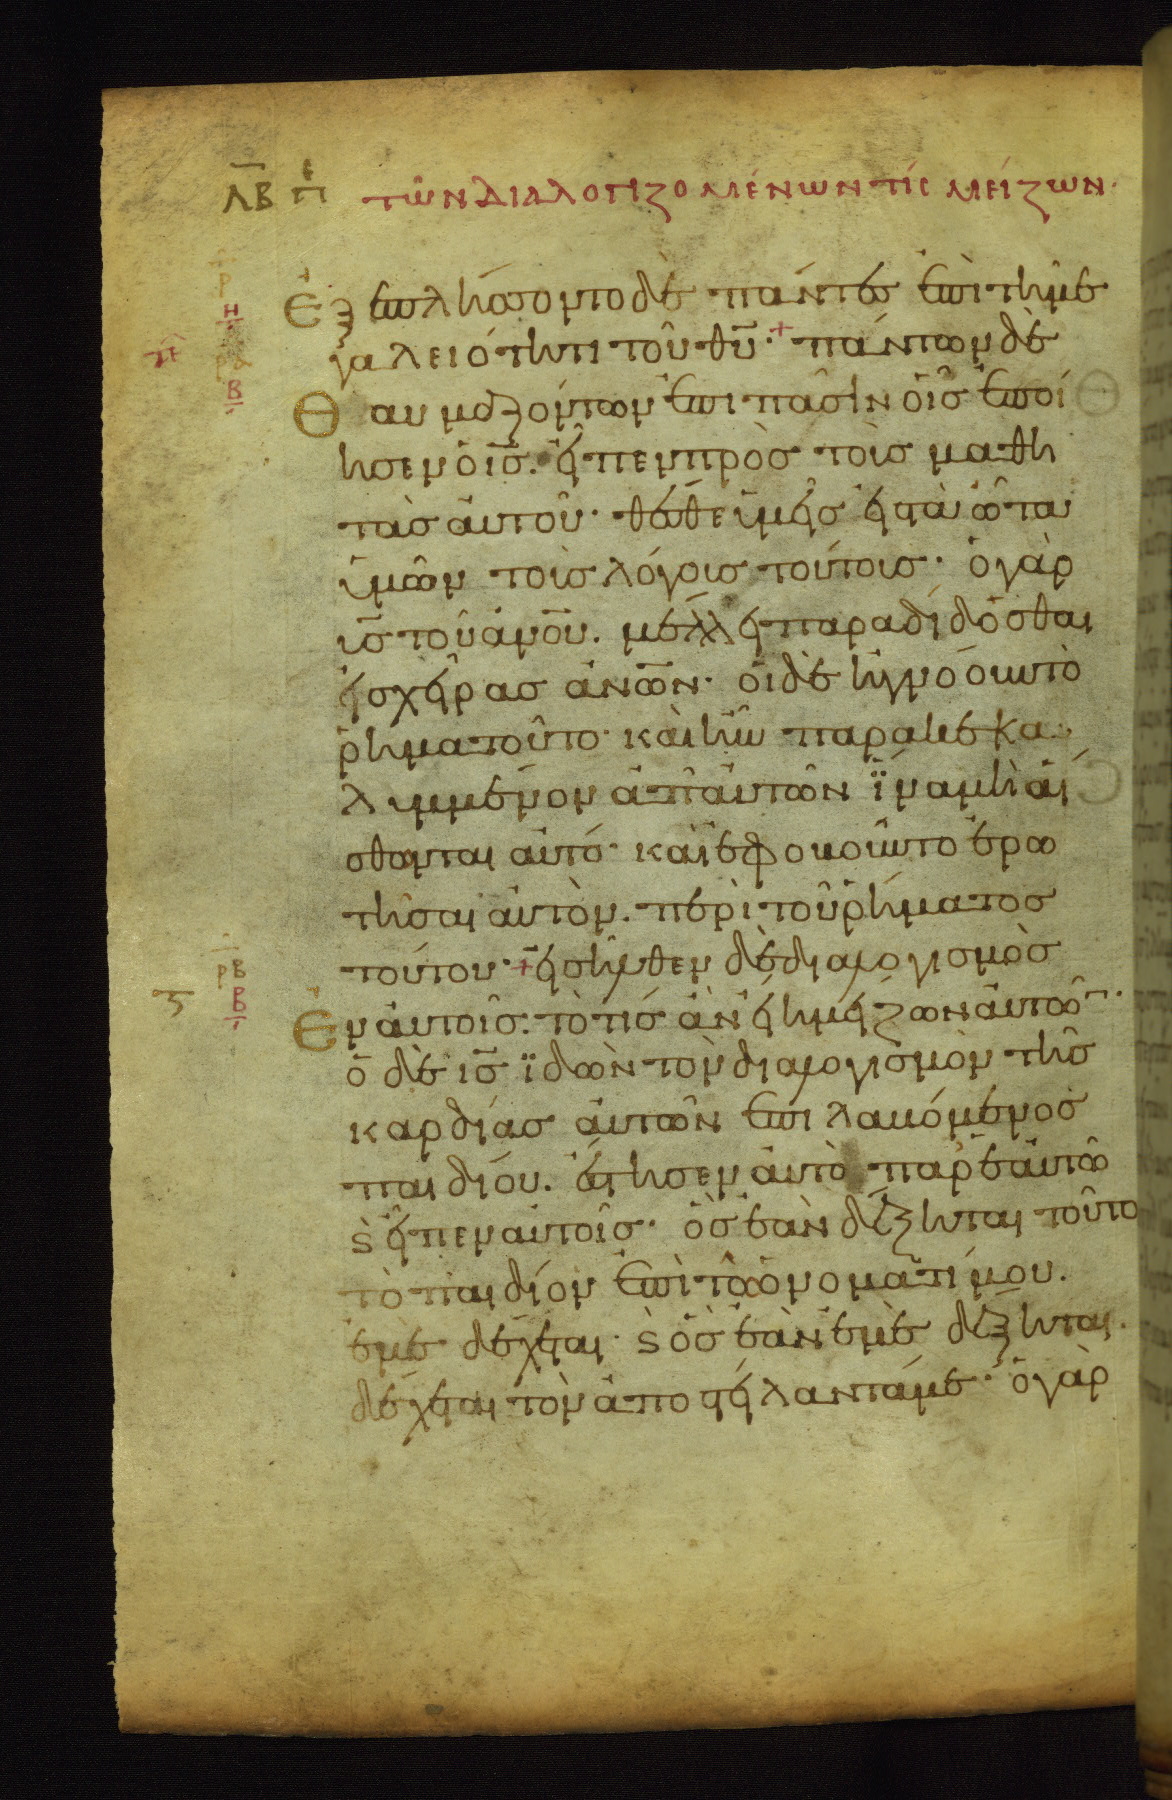 ΛΒ πε τῶν διαλογιζομένων τίς μείζων·
Ἐξεπλήσσοντο δὲ πάντες ἐπὶ τῆ με
γαλειότητι τοῦ θυ̅· + πάντων δὲ
Θαυμαζόντων ἐπι πᾶσιν οἷς ἐποί
ησεν ὁ ις̅. εἶπεν πρὸς τοὺς μαθη
τὰς αὐτοῦ· θέσθε ὑμεῖς εἰς τὰ ὦτα
ὑμῶν τοὺς λόγους τούτους· ὁ γὰρ
υς̅ τοῦ ἀνου̅. μέλλει παραδίδοσθαι
εἰς χεῖρας ἀνων̅· οἱ δὲ ἠγνόουν τὸ
ῥῆμα τοῦτο· καὶ ἦν παρακεκα
λυμμένον ἀπ' αὐτῶν ἵνα μὴ αἴ
σθωνται αὐτό· καὶ ἐφοβοῦντο ἐρω
τῆσαι αὐτὸν. περὶ τοῦ ῥήματος
τούτου· + εἰσῆλθεν δὲ διαλογισμὸς
Ἐν αὐτοῖς. τὸ τίς ἂν εἴη μείζων αὐτῶν·
ὁ δὲ ις̅ ἰδὼν τὸν διαλογισμὸν τῆς
καρδίας αὐτῶν ἐπιλαβόμενος
παιδίου. ἔστησεν αὐτὸ παρ' ἑαυτῶ
ϛ εἶπεν αὐτοῖς· ὃς ἐὰν δέξηται τοῦτο
τὸ παιδίον ἐπὶ τῶ ὀνόματί μου.
ἐμὲ δέχεται· ϛ ὃς ἐὰν ἐμὲ δέξηται.
δέχεται τὸν ἀποστείλαντά με· ὁ γὰρ
ρ
Η
πε
ρα
Β
ρβ
Β